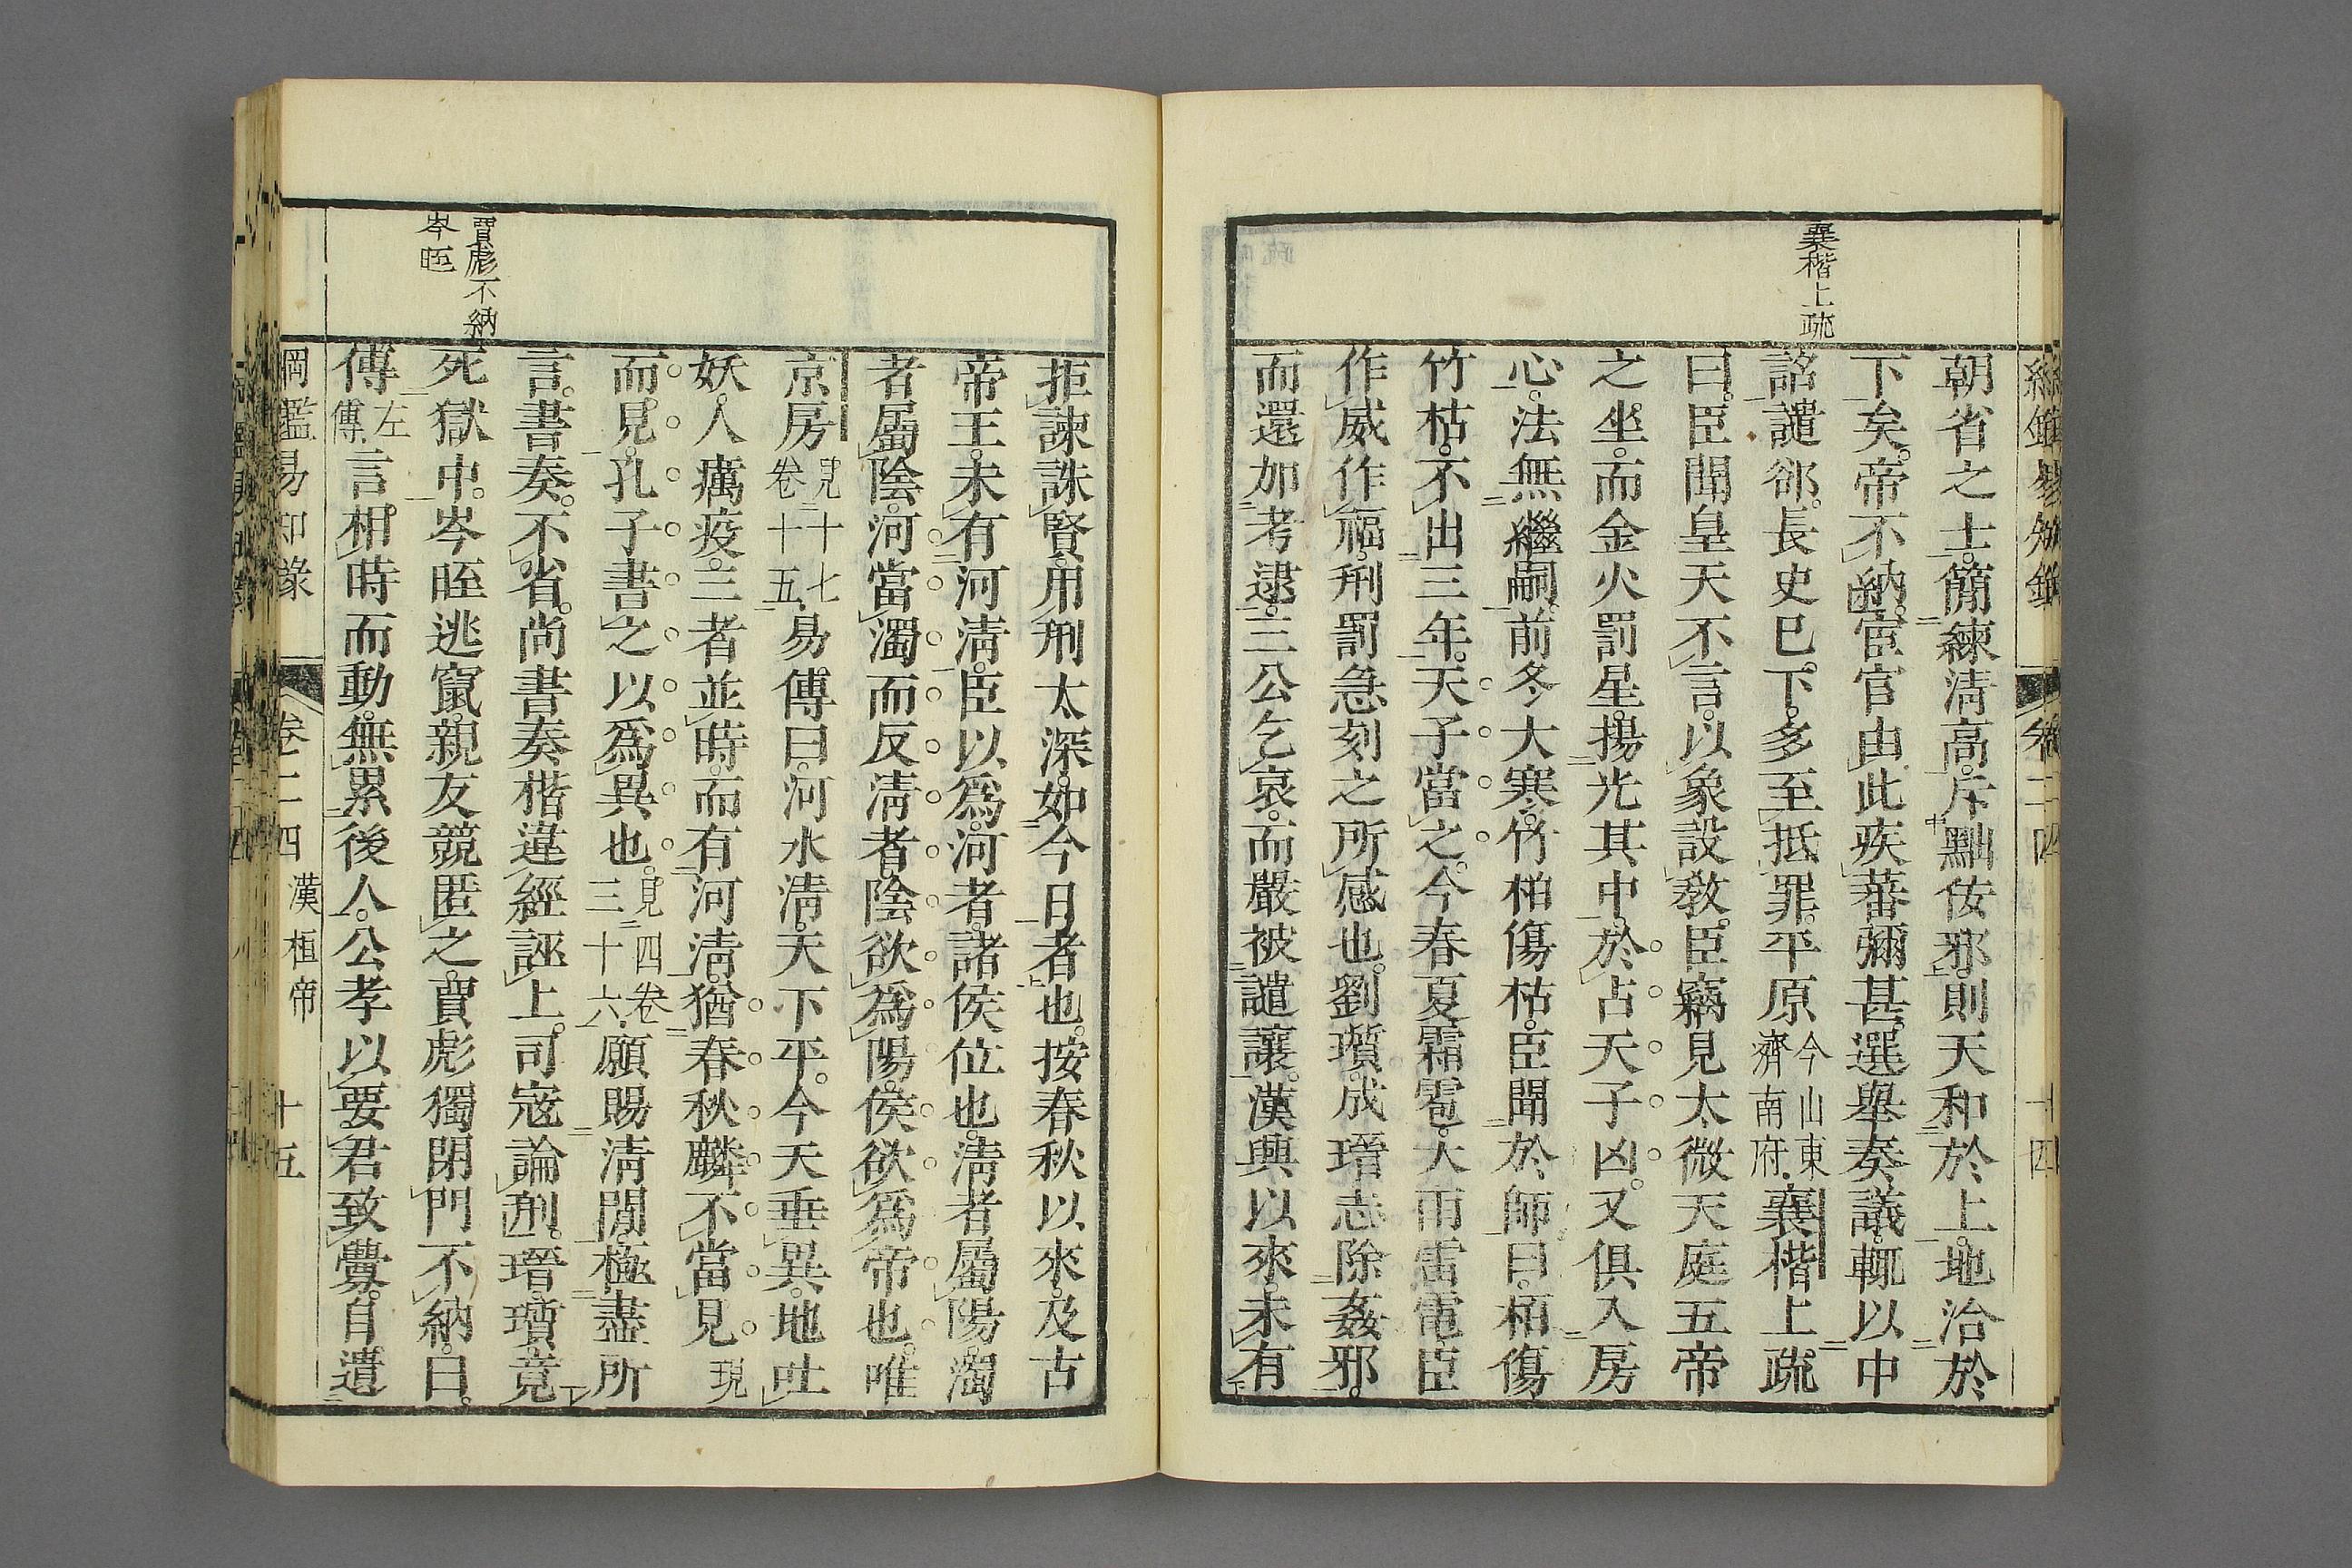 襄楷上疏
朝省之士。簡練清高。斥黜佞邪。則天和於上。地洽於
下矣。帝不納。宦官由此疾蕃彌甚。選舉奏議。輒以中
詔譴郤。長史已下。多至抵罪。平原今山東濟南府。襄楷上疏
曰。臣聞皇天不言。以象設敎。臣竊見太微天庭五帝
之坐。而金火罰星。揚光其中。於占天子凶。又俱入房
心。法無繼嗣。前冬大寒。竹柏傷枯。臣聞於師曰。柏傷
竹枯。不出三年。天子當之。今春夏霜雹。大雨雷電。臣
作威作福。刑罰急刻之所感也。劉瓆成瑨志除姦邪。
而還加考逮。三公乞哀。而嚴被譴讓。漢興以來。未有
拒諫誅賢。用刑太深。如今日者也。按春秋以來。及古
帝王。未有河淸。臣以爲。河者。諸侯位也。淸者屬陽。濁
者屬陰。河當濁而反淸者。陰欲爲陽。侯欲爲帝也。唯
京房見十七卷十五。易傳曰。河水淸。天下平。今天垂異。地吐
妖。人癘疫。三者並時。而有河淸。猶春秋麟不當見現
而見。孔子書之以爲異也。見四卷三十六。願賜淸閒。極盡所
言。書奏。不省。尚書奏楷違經誣上。司寇論刑。瑨瓆竟
死獄中。岑晊逃竄。親友競匿之。賈彪獨閉門不納。曰。
傳左傳。言。相時而動。無累後人。公孝以要君致釁。自遺
賈彪不納
岑晊
綱鑑易知錄 卷二四 漢桓帝 十五